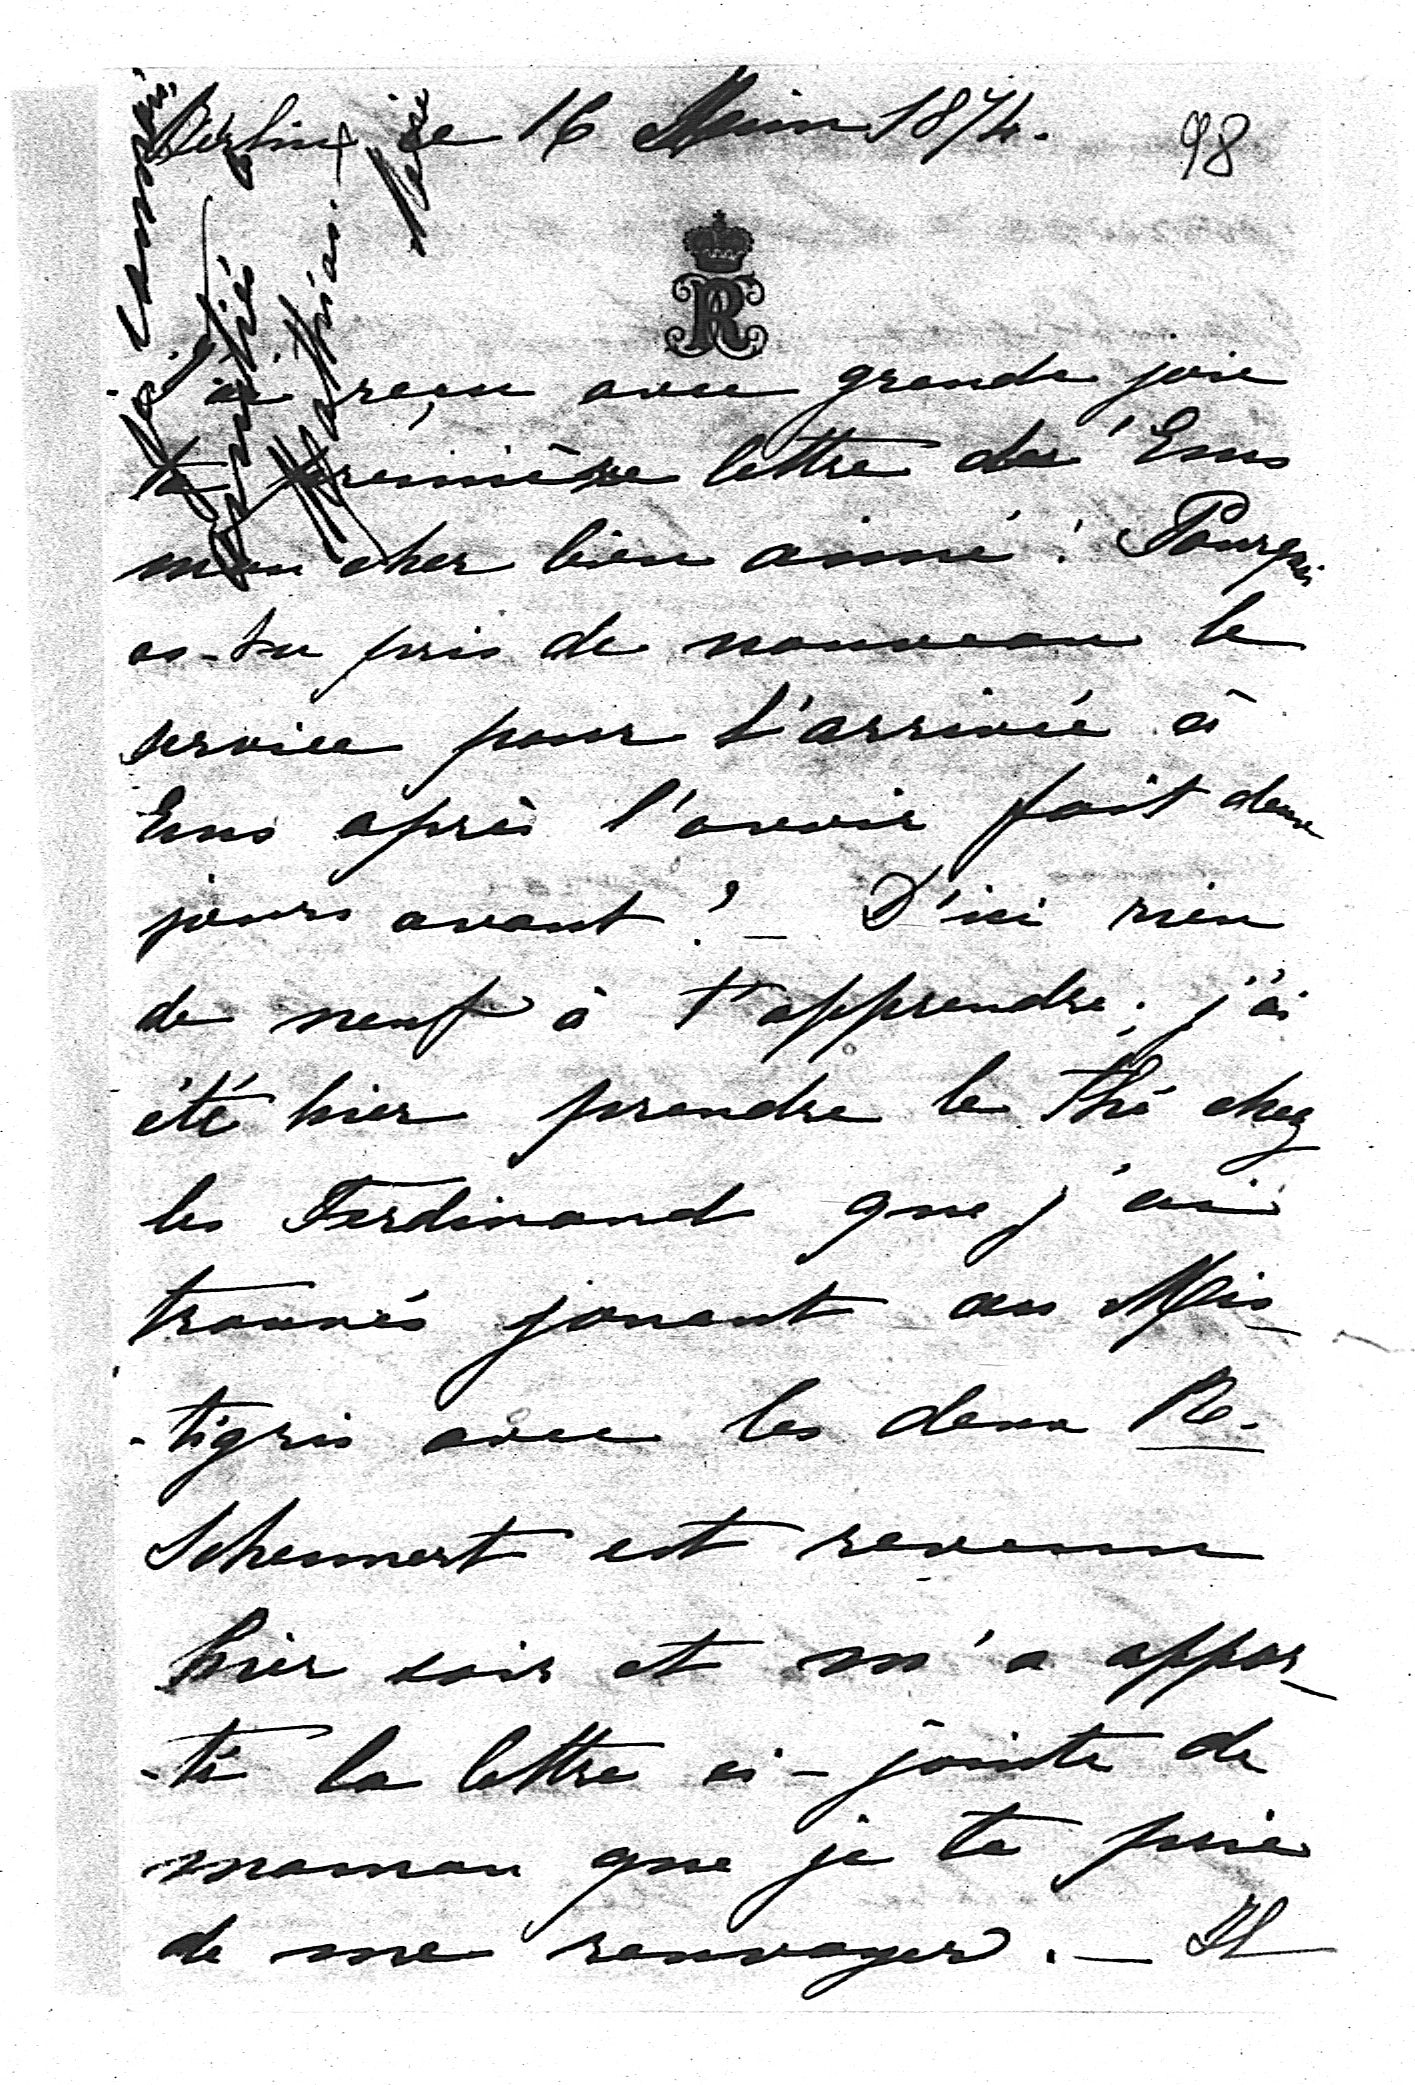 Berlin, ce 16 Juin 1874.
98
R
J'ai reçu avec grande joie
ta première lettre der' Ems
mon cher bien aimé! Pourquoi
as-tu pris de nouveau le
service pour l'arrivée à
Ems après l'avoir fait deux
jours avant? – D'ici rien
de neuf à t'apprendre; j'ai
été hier prendre le thé chez
les Ferdinand que j'ai
trouvés jouant au Mis-
-tigris avec les deux R.
est revenu
hier soir et m'a appor-
-té la lettre ci-jointe de
maman que je te prie
de me renvoyer. – Il